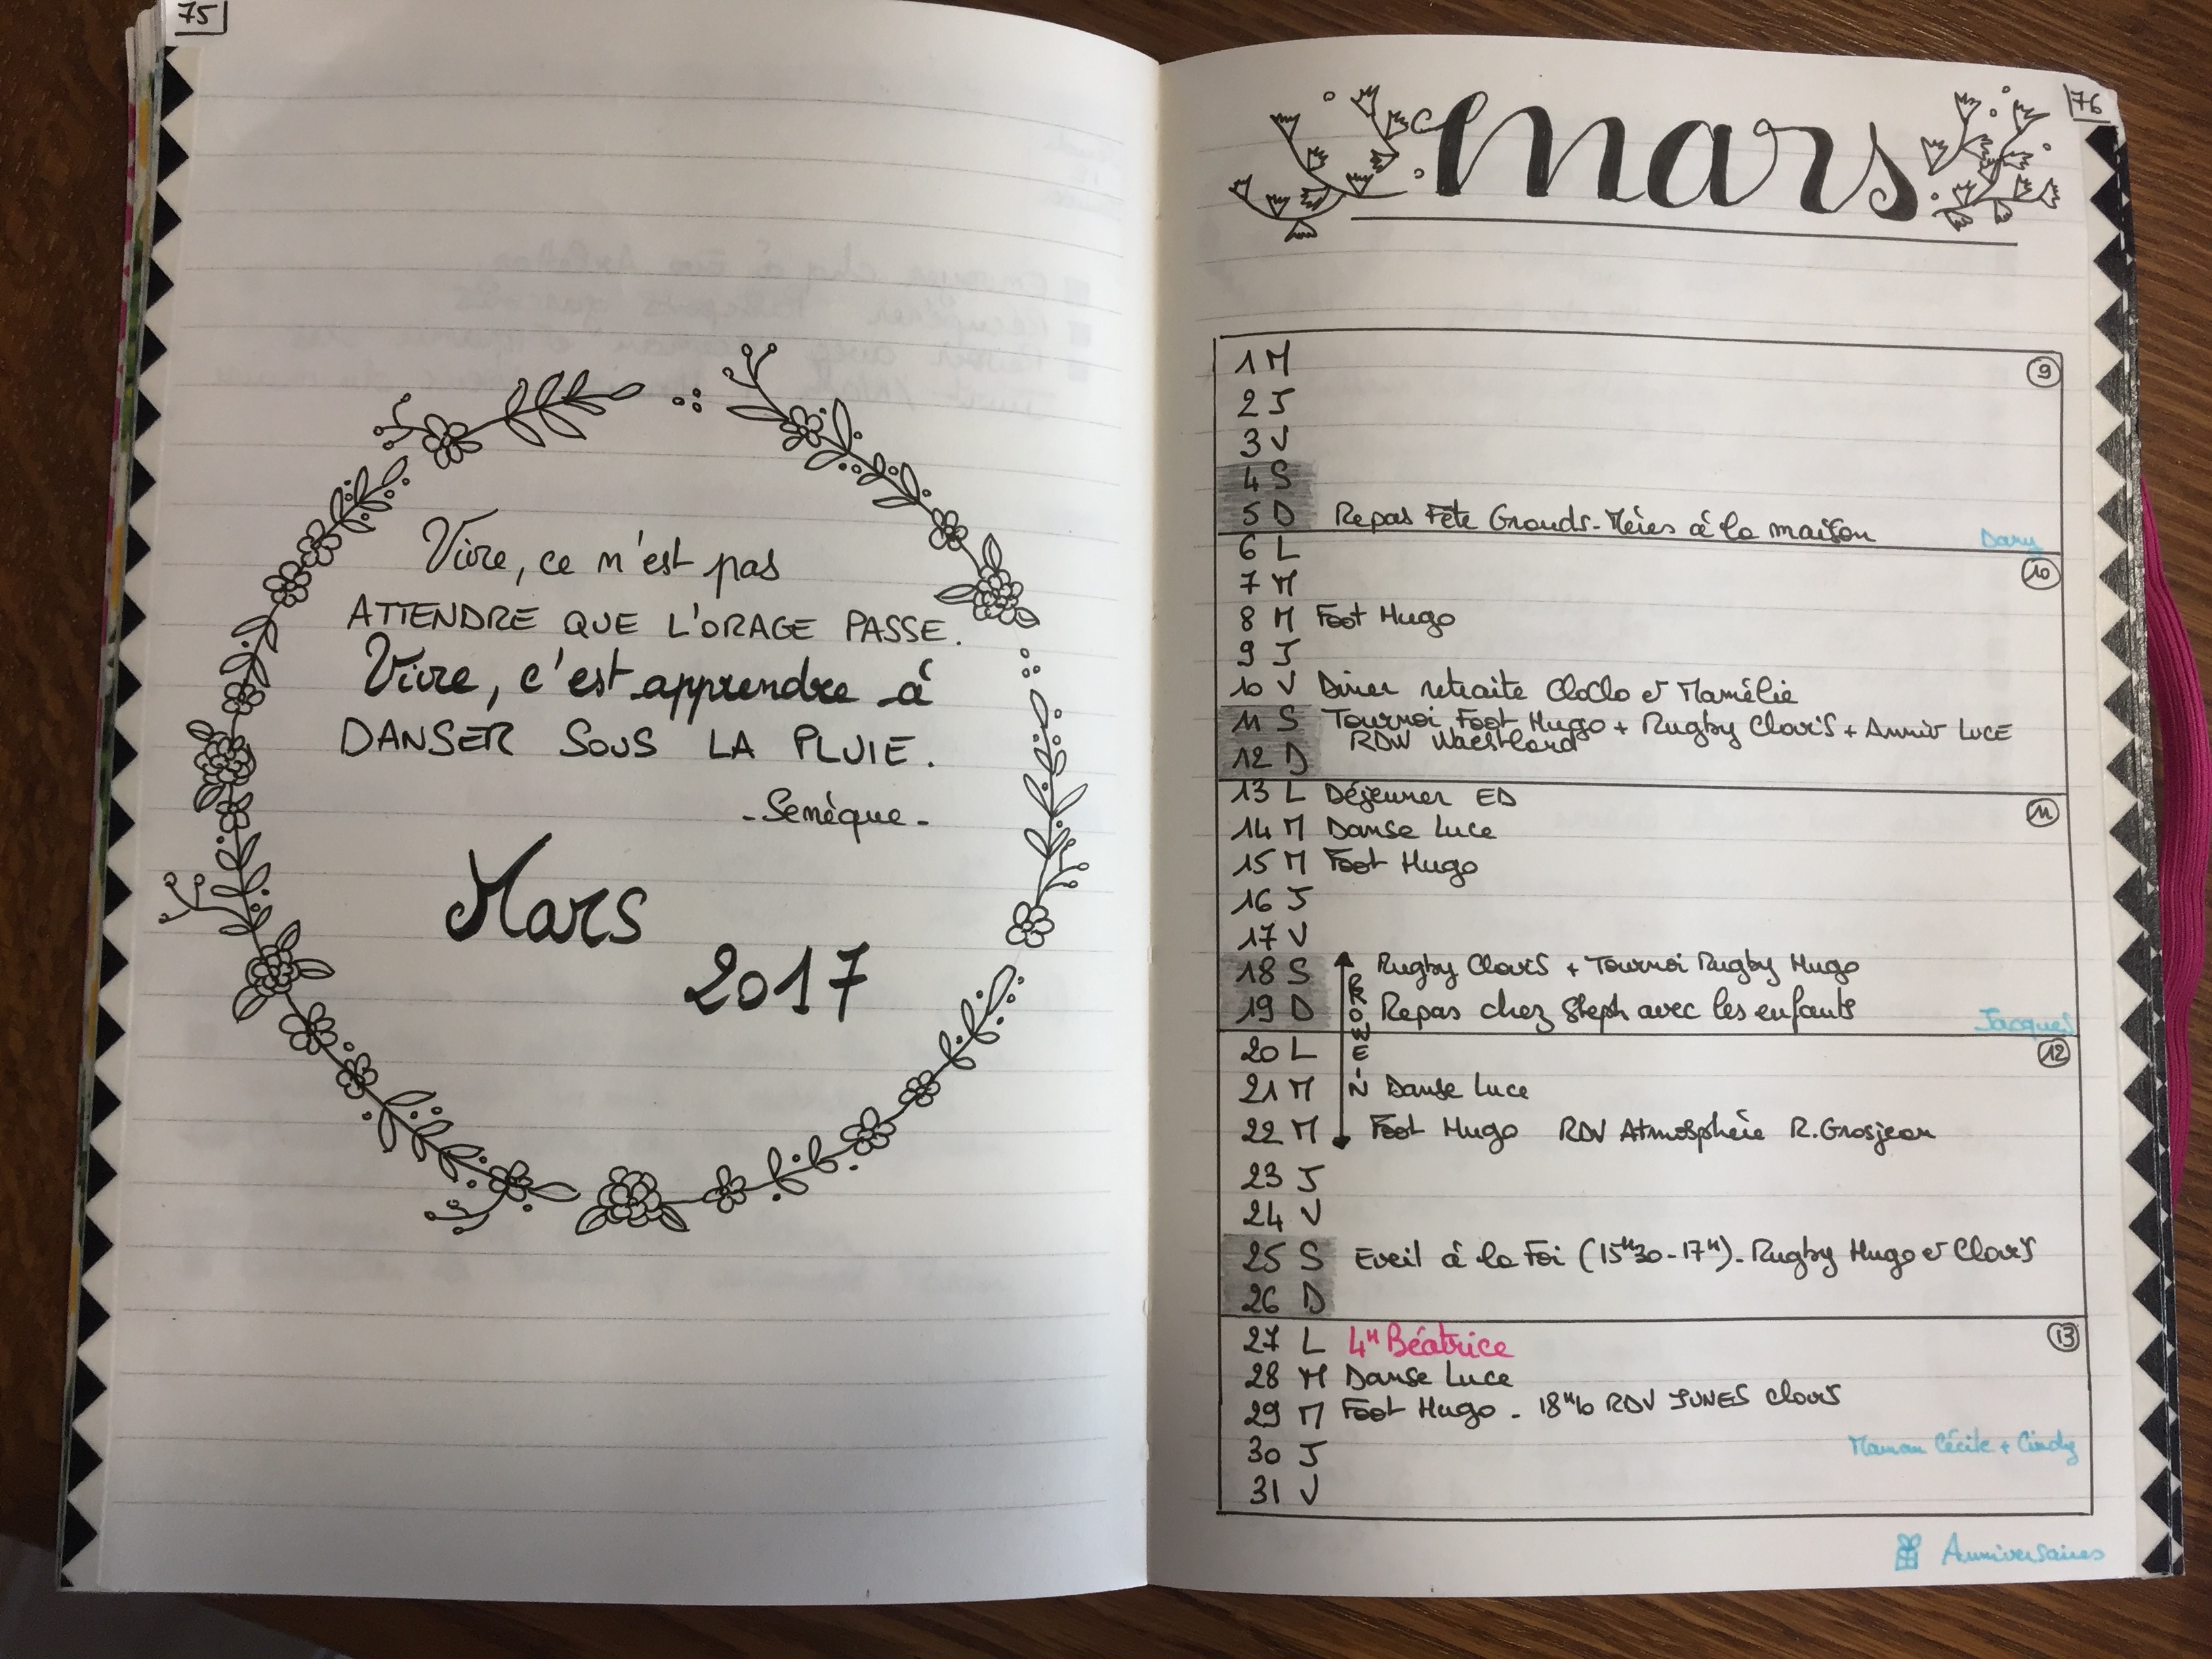 75
Vivre, ce n'est pas
ATTENDRE QUE L'ORAGE PASSE.
Vivre, c'est apprendre à
DANSER SOUS LA PLUIE.
- Senèque -
Mars
2017
76
mars
1 M 9
2 J
3 V
4 S
5 D Repas Fête Grands-Mères à la maison Dany
6 L
7 M 10
8 M Foot Hugo
9 J
10 V Diner retraite CloClo et Mamélie
11 S Tournoi Foot Hugo + Rugby Clovis + Anniv LUCE
RDV
12 D
13 L Déjeuner ED 11
14 M Danse Luce
15 M Foot Hugo
16 J
17 V
18 S Rugby Clovis + Tournoi Rugby Hugo
19 D Repas chez Steph avec les enfants Jacques
PROWEIN
20 L 12
21 M Danse Luce
22 M Foot Hugo RDV Atmosphère R.Grosjean
23 J
24 V
25 S Eveil à la Foi (15H30-17H). Rugby Hugo et Clovis
26 D
27 L 4H Béatrice 13
28 M Danse Luce
29 M Foot Hugo - RDV JUNES Clovis
30 J Maman Cécile + Cindy
31 V
Anniversaires